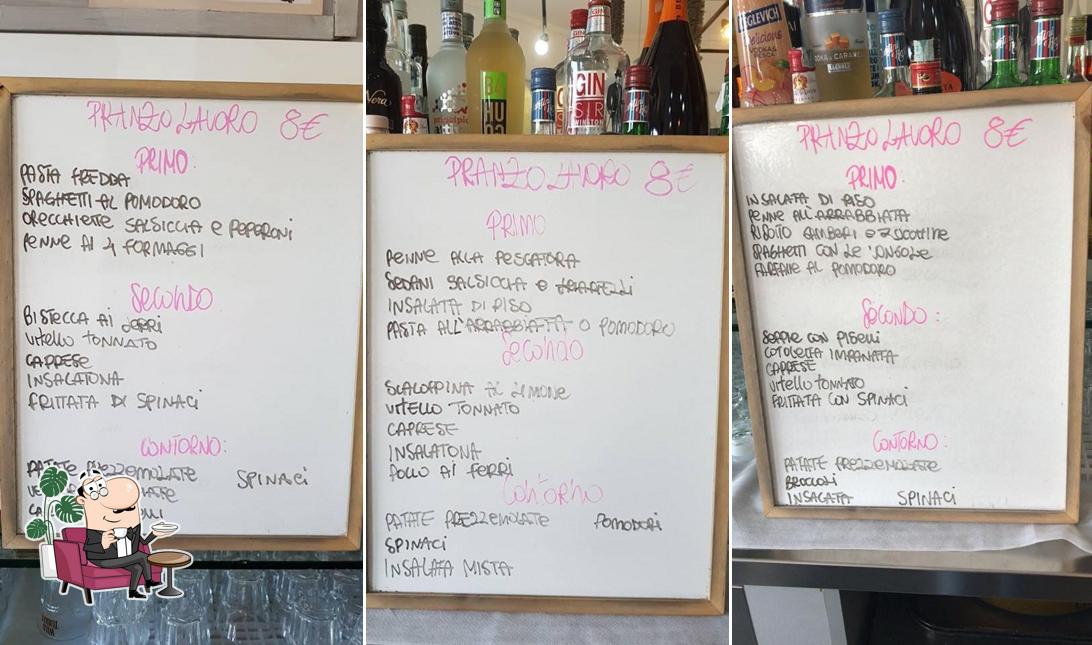 PRANZO LAVORO 8€
PRIMO:
PASTA FREDDA
SPAGHETTI AL POMODORO
ORECCHIETTE SALSICCIA E PEPERONI
PENNE AI 4 FORMAGGI
SECONDO
BISTECCA AI FERRI
VITELLO TONNATO
CAPRESE
INSALATONA
FRITTATA DI SPINACI
CONTORNO:
PATATE PREZZEMOLATE SPINACI
BAHU
GIN
PRANZO LAVORO 8€
PRIMO
PENNE ALLA PESCATORA
SEDANI SALSICCIA E
INSALATA DI RISO
PASTA ALL'ARRABBIATA O POMODORO
SECONDO
SCALOPPINA AL LIMONE
VITELLO TONNATO
CAPRESE
INSALATONA
POLLO AI FERRI
CONTORNO
PATATE PREZZEMOLATE POMODORI
SPINACI
INSALATA MISTA
KEGLEVICH
Delicious
PRANZO LAVORO 8€
PRIMO:
INSALATA DI RISO
PENNE ALL'ARRABBIATA
RISOTTO GAMBERI E ZUCCHINE
SPAGHETTI CON LE VONGOLE
FARFALLE AL POMODORO
SECONDO:
SEPPIE CON PISELLI
COTOLETTA IMPANATA
CAPRESE
VITELLO TONNATO
FRITTATA CON SPINACI
CONTORNO:
PATATE PREZZEMOLATE
BROCCOLI
INSALATA SPINACI